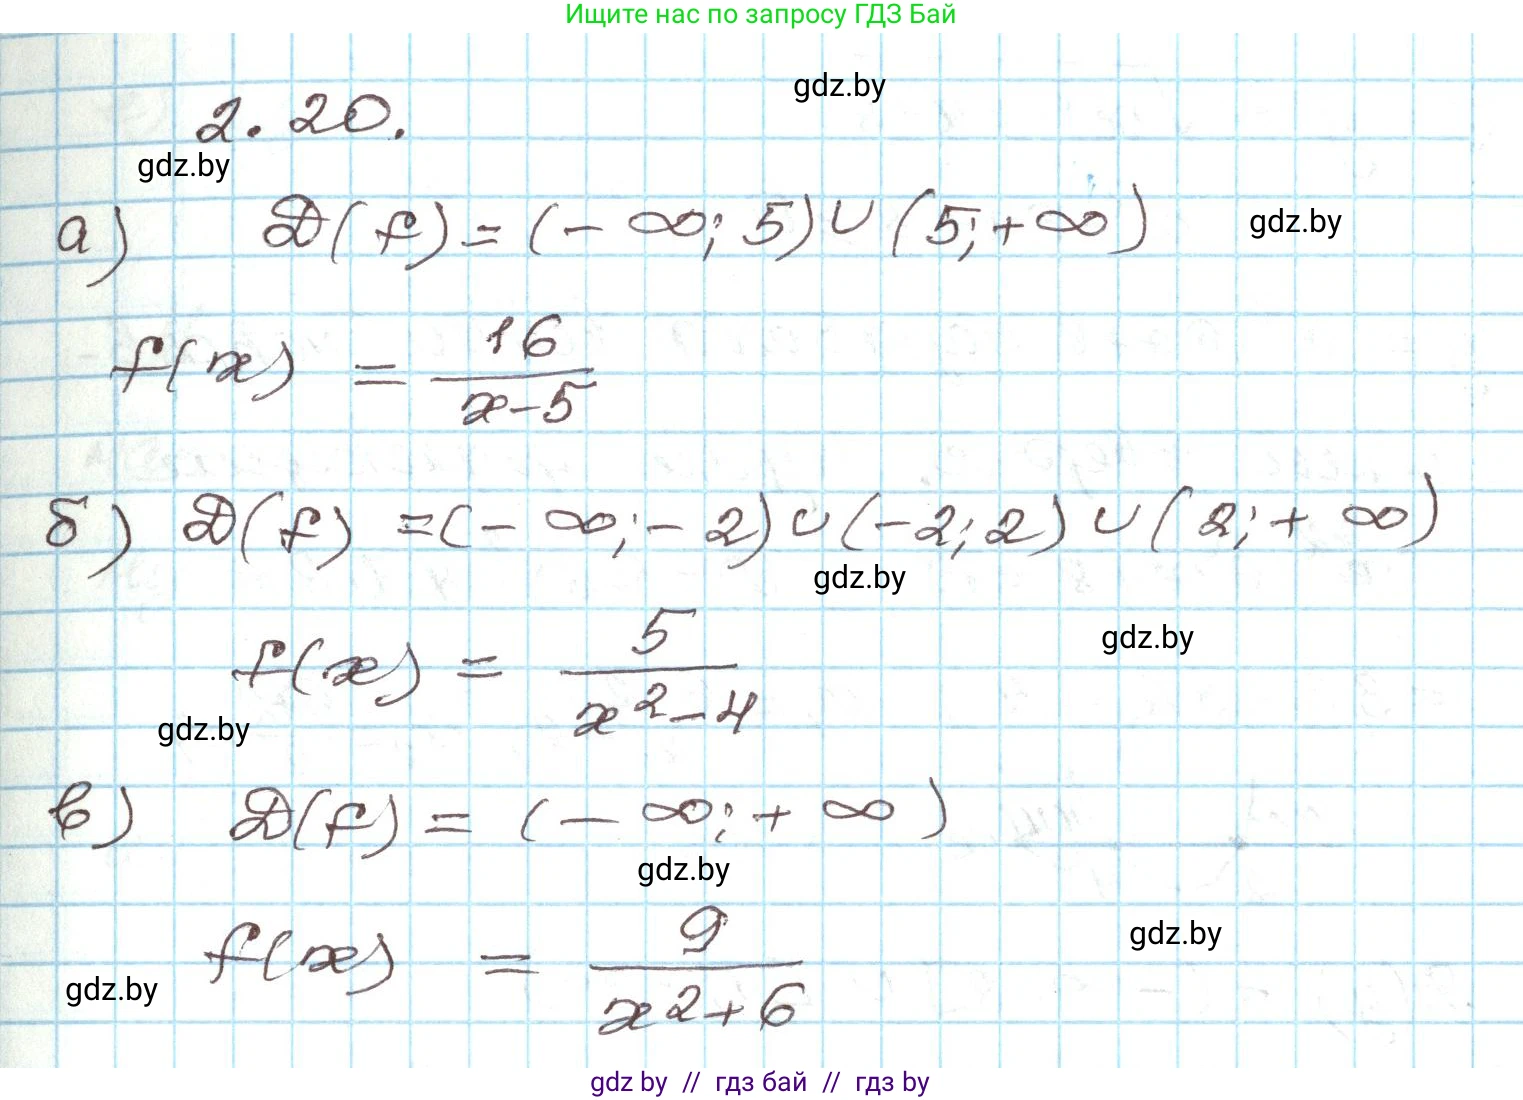 Ищите нас по запросу ГДЗ Бай
gdz.by
2.20.
gdz.by
а) D(f) = (-∞; 5) ∪ (5; +∞)
gdz.by
f(x) = 16/(x-5)
б) D(f) = (-∞; -2) ∪ (-2; 2) ∪ (2; +∞)
gdz.by
gdz.by
f(x) = 5/(x²-4)
gdz.by
в) D(f) = (-∞; +∞)
gdz.by
gdz.by
f(x) = 9/(x²+6)
gdz.by
gdz by // гдз бай // гдз by